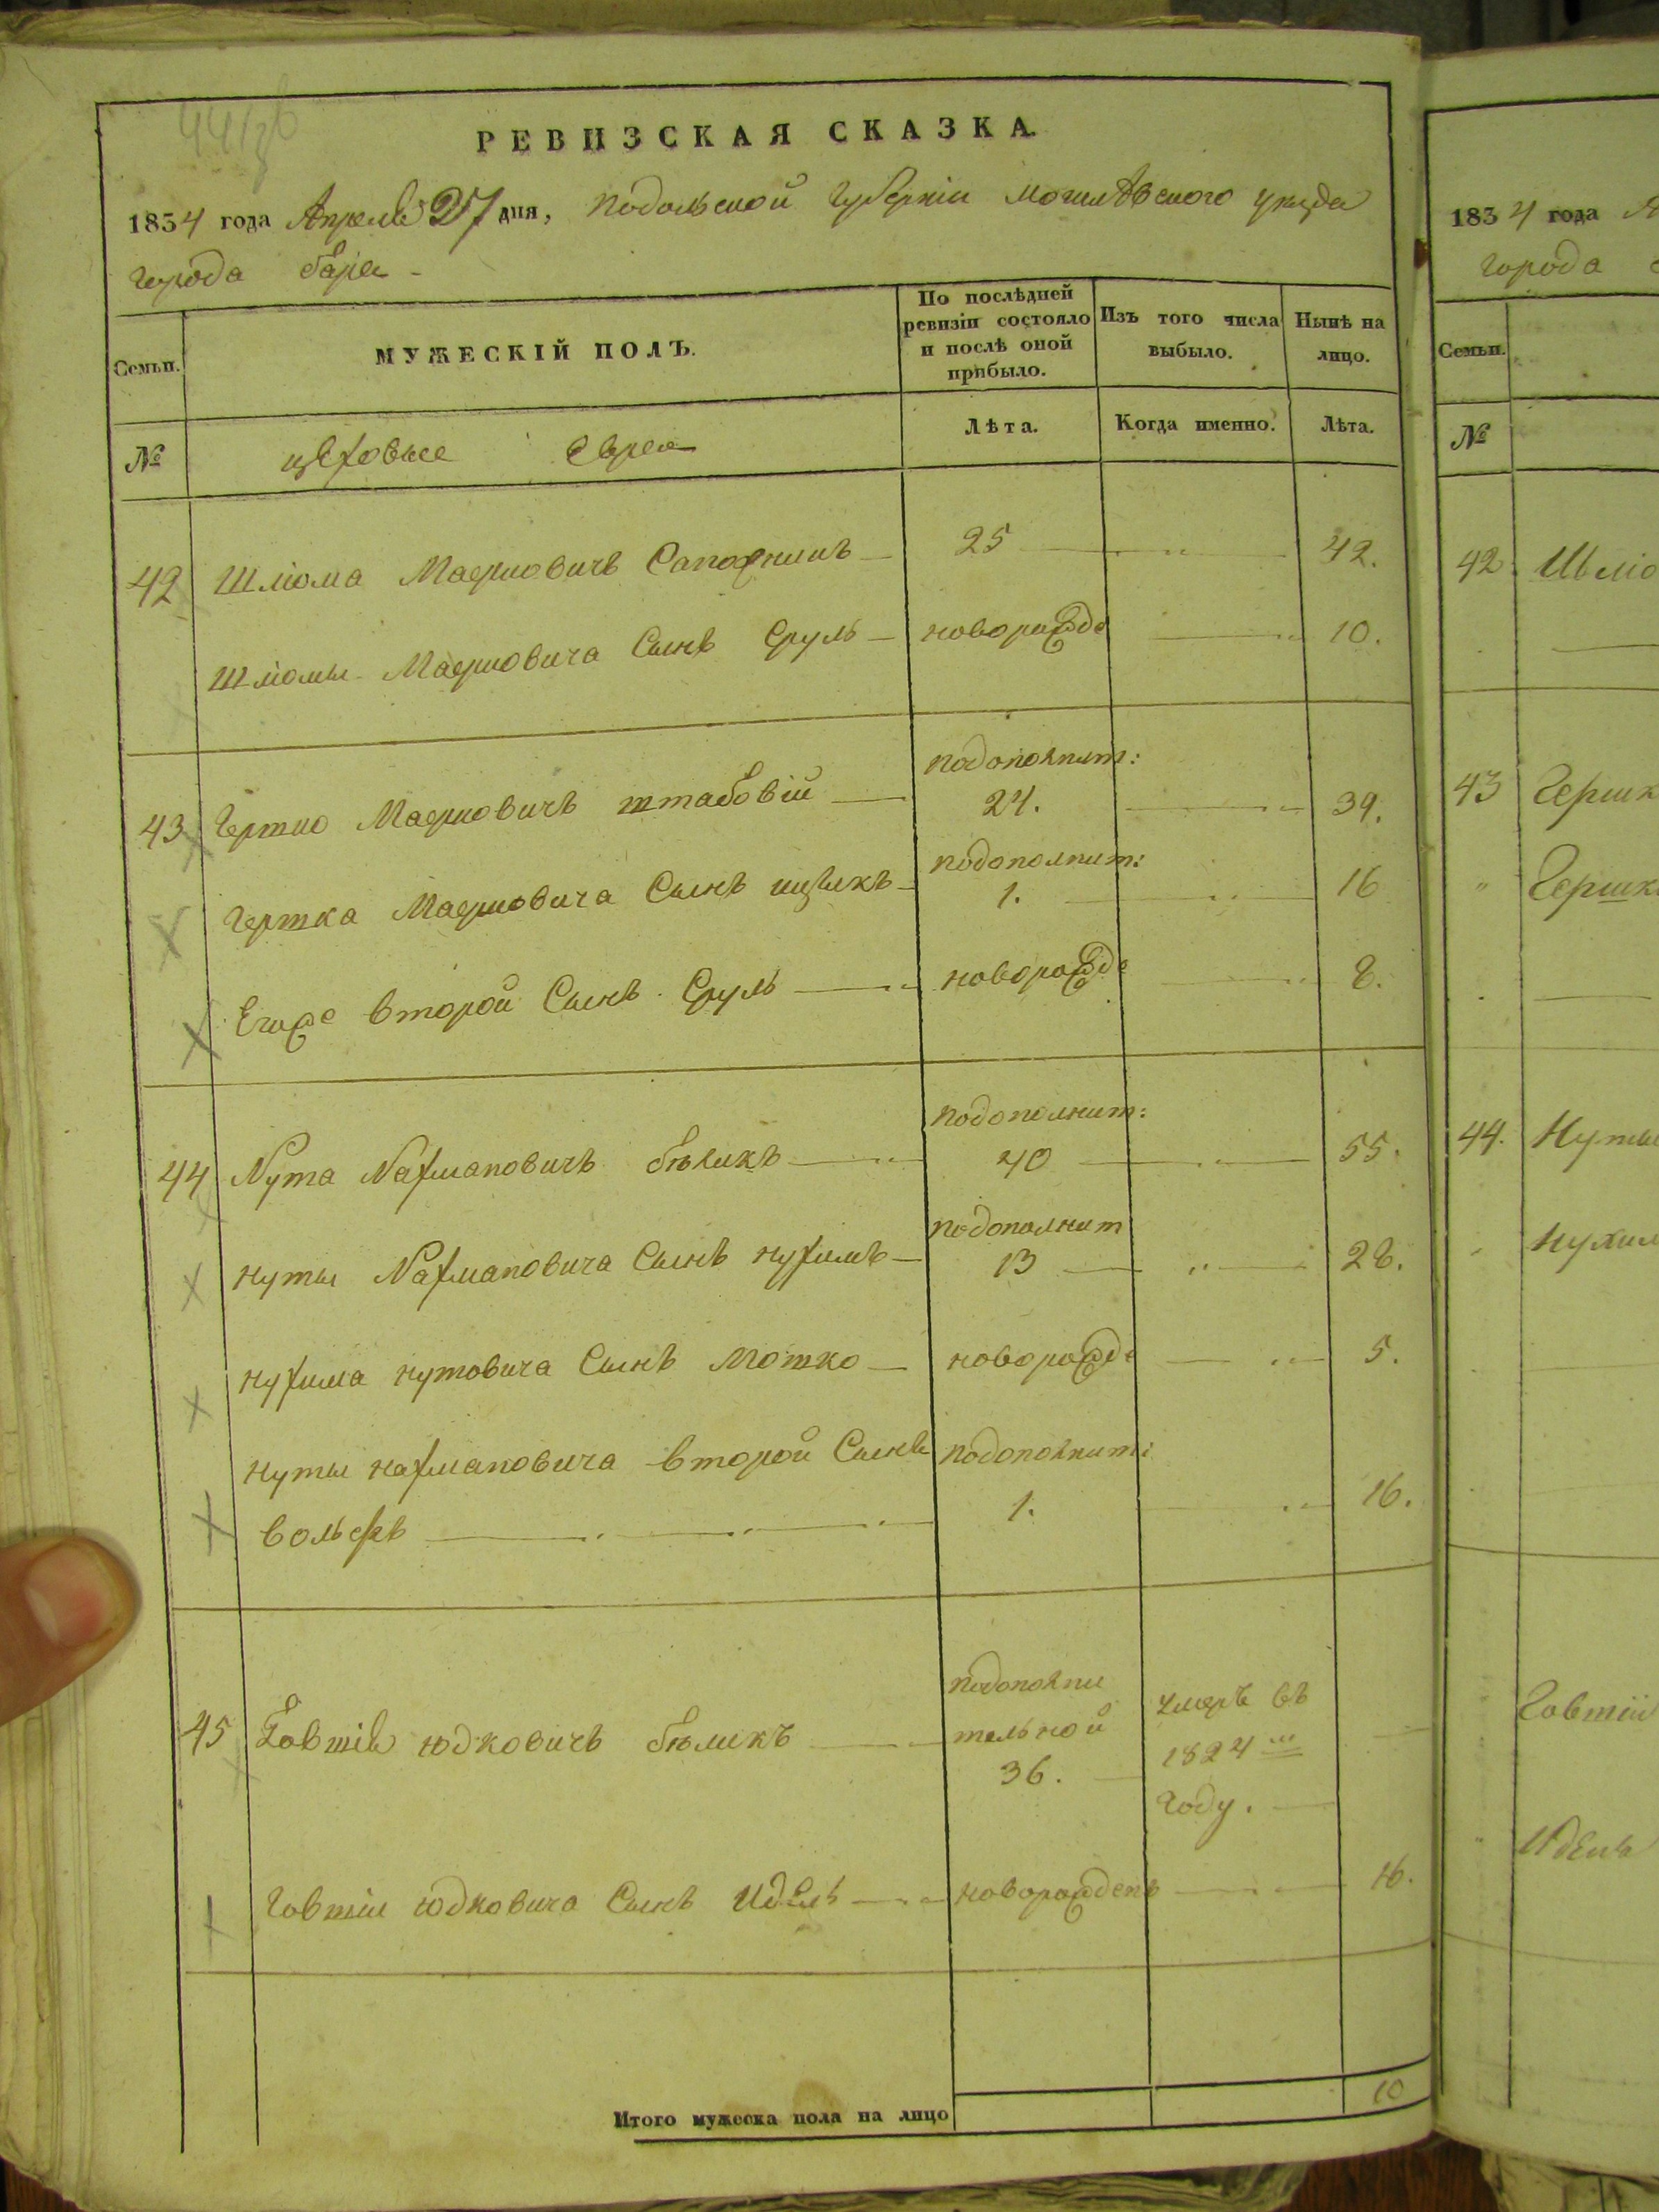 РЕВИЗСКАЯ СКАЗКА.
1834 года Апреля 27 дня, Подольской Губерніи Могилѣвского уезда
города бара
Семьи.
МУЖЕСКІЙ ПОЛЪ.
По послѣдней ревизіи состояло и послѣ оной прибыло.
Изъ того числа выбыло.
Нынѣ на лицо.
№
цеховые Евреи
Лѣта.
Когда именно.
Лѣта.
42 Шліома Маерковичъ Сапожникъ 25 42.
Шліомы Маерковича Сынъ Сруль новорожде 10.
подополнит:
43 Гершко Маерковичъ 24. 39.
подополнит:
Гершка Маерковича Сынъ ицыкъ 1. 16
Егоже второй Сынъ Сруль новорожде 8.
подополнит:
44 Нута Нахмановичъ бѣликъ 40 55.
подополнит
нуты Нахмановича Сынъ нухимъ 13 28.
нухима нутовича Сынъ Мошко новорожде 5.
нуты нахмановича второй Сынъ подополнит:
вольфъ 1. 16.
подополни
тельной
36.
умеръ въ
1824 м
году.
45 юдковичъ бѣликъ
юдковича Сынъ Идель новорожденъ 16.
Итого мужеска пола на лицо 10
1834 года А
города
Семьи.
№
42 Шьліо
43 Гершк
" Гершк
44. Нуты
нухим
Идель